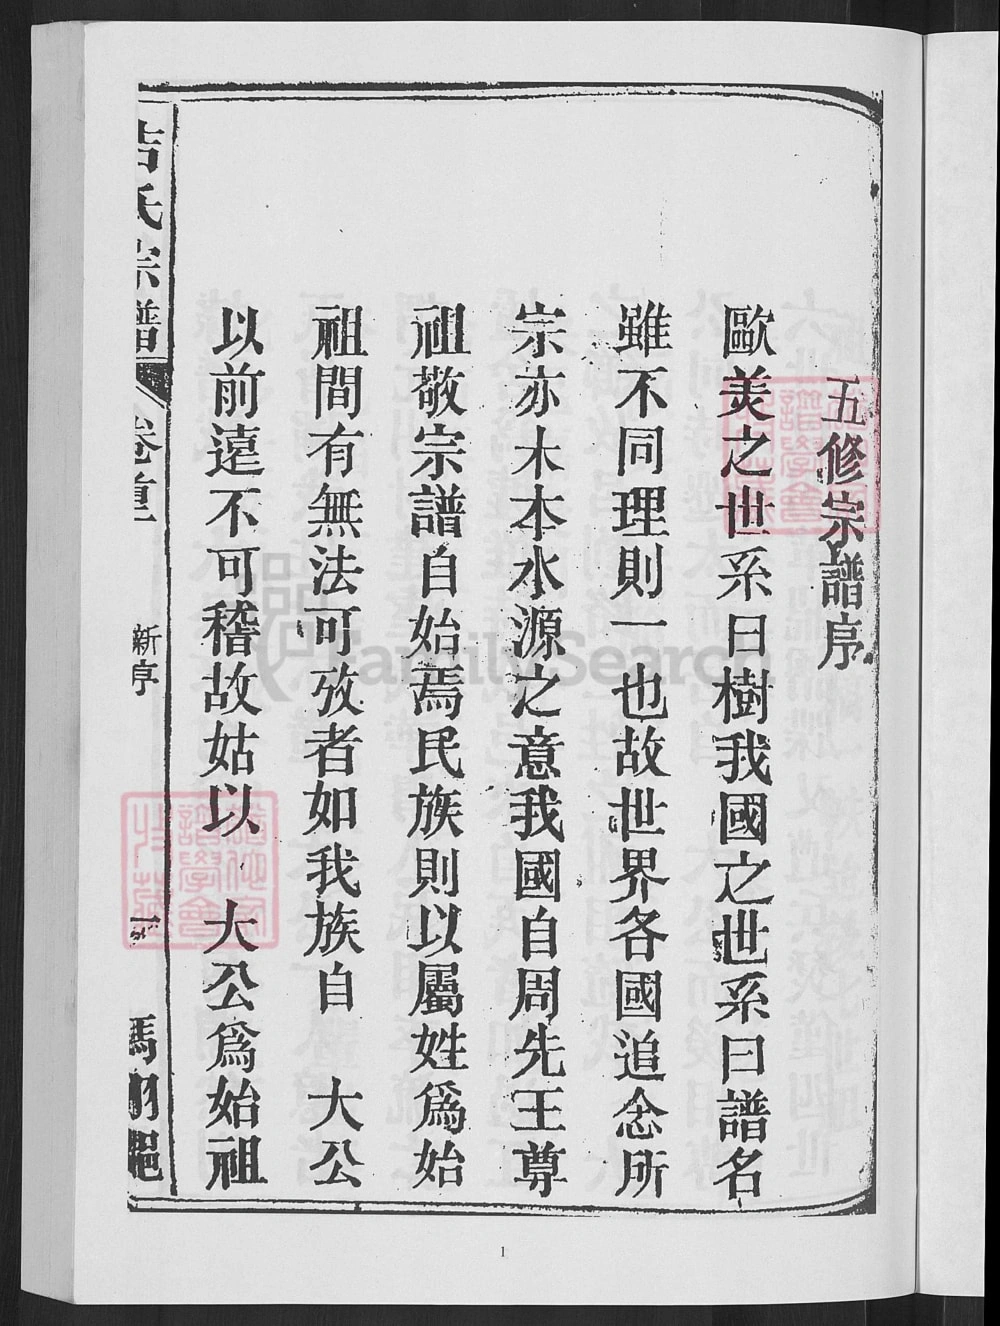 五修宗譜序
歐美之世系曰樹我國之世系曰譜名
雖不同理則一也故世界各國追念所
宗亦木本水源之意我國自周先王尊
祖敬宗譜自始焉民族則以屬姓為始
祖間有無法可攷者如我族自 大公
以前遠不可稽故姑以 大公為始祖
氏宗譜
卷首
新序
一
FamilySearch
1